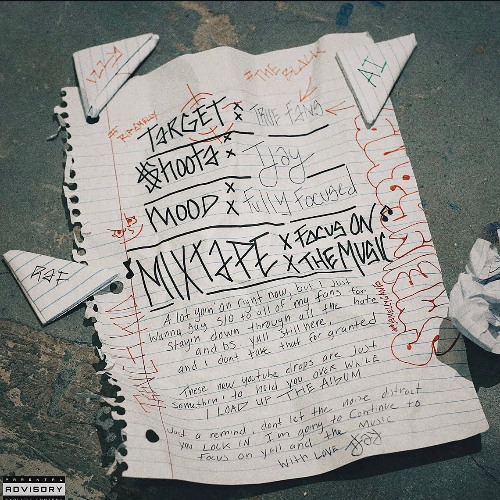 #THE BLOCK
AI
TARGET x TRUE FANS
$hoota x Tjay
MOOD x Fully Focused
MIXTAPE x FOCUS ON
x THE MUSIC
A lot goin on right now, but i Just
Wanna say S/O to all of my fans for
Stayin down through all the hate
and bs. yall still here,
and i dont take that for granted
These new youtube drops are Just
Somethin' to hold you over WHILE
I LOAD UP THE ALBUM
Just a remind, dont let the noise distract
you LOCK IN. I'm going to Continue to
Focus on yall and the Music
With LOVE
PARENTAL
ADVISORY